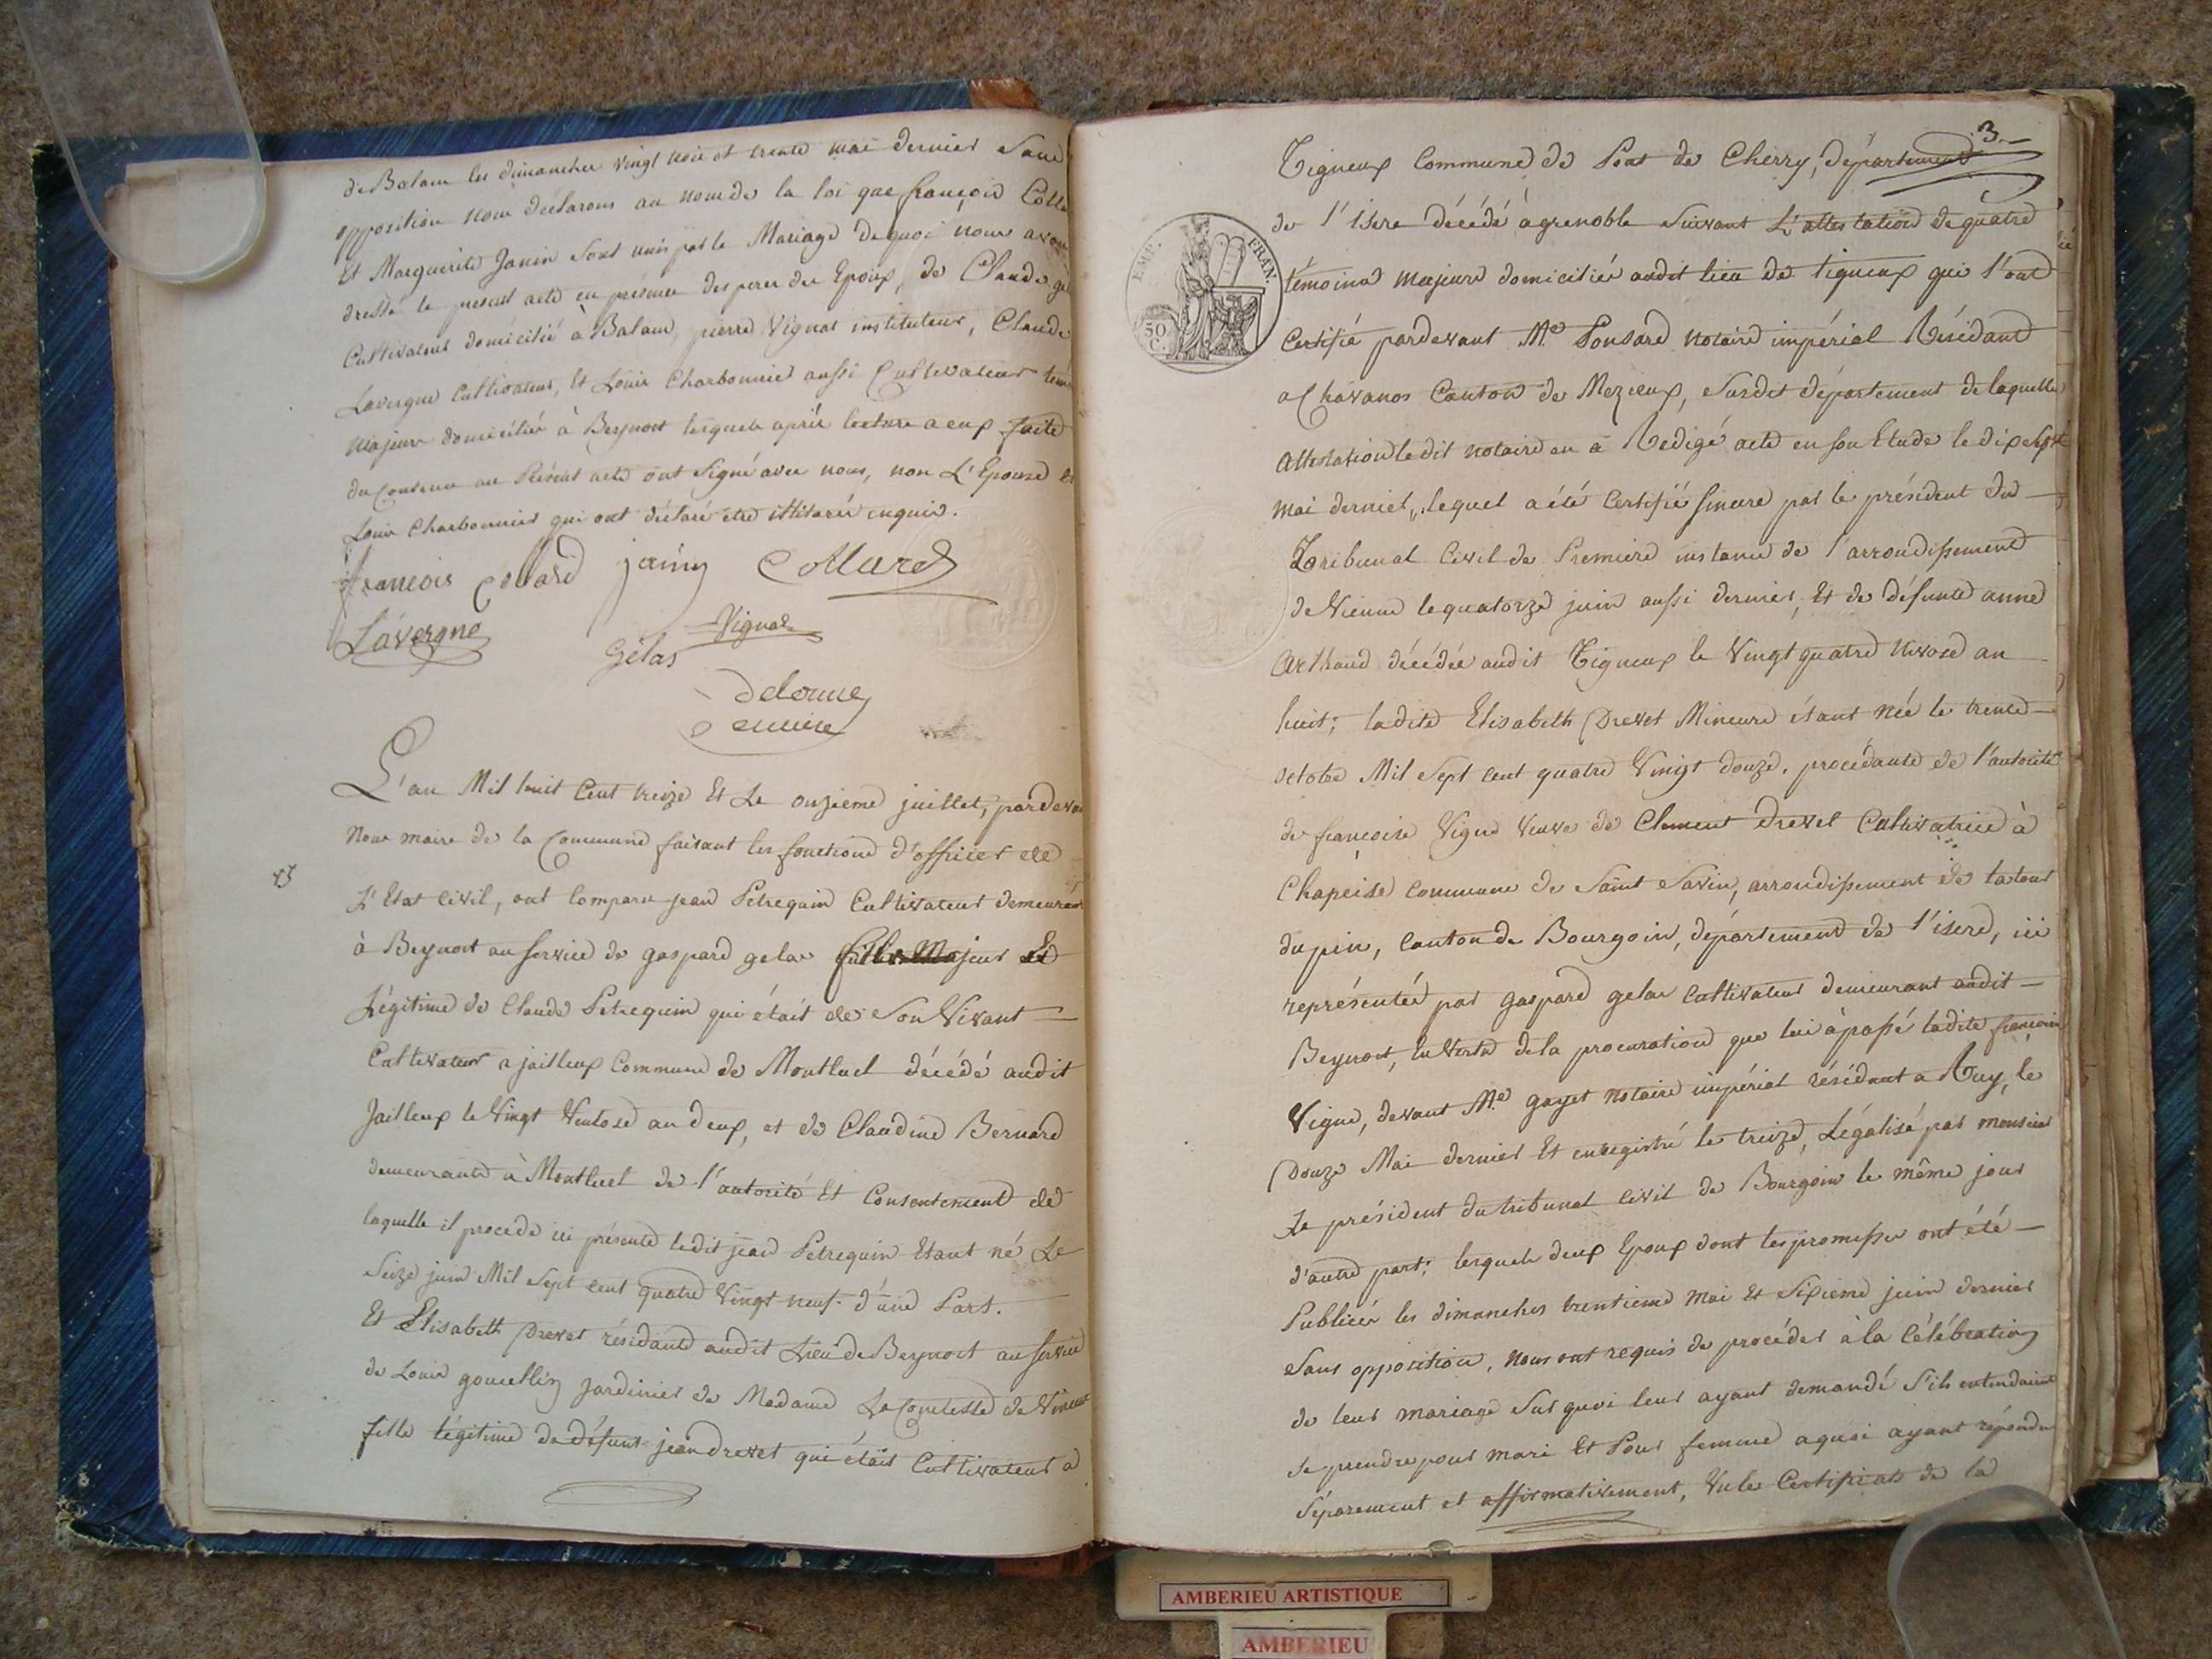 de Balan les dimanches vingt trois et trente mai dernier Sans
opposition nous déclarons au nom de la loi que françois Colla
Et Marguerite Janin Sont unis par le Mariage de quoi nous avon
dressé le present acte en présence des peres des Epoux, de Claude ge
Cultivateur domicilié à Balan, pierre Vignat instituteur, Claude
Lavergne Cultivateur, Et Louis Charbonnier aussi Cultivateur tem
Majeurs domiciliés à Beynost lesquels après lecture a eux faite
du Contenu au Présent acte ont Signé avec nous, non L'Epouse et
Louis Charbonnier qui ont déclaré être illitérés enquis.
françois collard janin Collard
Lavergne Vignat
Gelas
delorme
maire
L'an Mil huit Cent treize Et Le onzieme juillet, pardevan
Nous maire de la Commune faisant les fonctions d'officier de
L'Etat Civil, ont Comparu jean Petrequin Cultivateur demeurant
à Beynost au Service de gaspard gelas fils Majeur Et
Légitime de Claude Petrequin qui était de Son Vivant
Cultivateur a jailleux Commune de Montluel décédé audit
Jailleux le Vingt Ventose an deux, et de Claudine Bernard
demeurante à Montluel de l'autorité Et Consentement de
laquelle il procede ici présente ledit jean Petrequin Etant né Le
Seize juin Mil Sept cent quatre Vingt neuf. d'une Part.
Et Elisabeth Drevet résidante audit Lieu de Beynost au Service
de Louis goucellin Jardinier de Madame La Comtesse de
fille légitime de défunt jean drevet qui était Cultivateur a
3
EMP. FRAN.
50 C.
Tigneux Commune de Pont de Cherry, département
de l'isere décédé à grenoble Suivant L'attestation de quatre
témoins majeurs domiciliés audit lieu de tigneux qui l'ont
Certifié pardevant Me Ponsard notaire impérial Résidant
a Chavanos Canton de Mezieux, Susdit département de laquelle
Attestation ledit notaire en a Redigé acte en son Etude le dix sept
mai dernier, lequel a été Certifié sincere par le président du
Tribunal Civil de Premiere instance de l'arrondissement
de Vienne le quatorze juin aussi dernier, Et de défunte anne
Arthaud décédée audit Tigneux le Vingt quatre Nivose an
huit; ladite Elisabeth Drevet Mineure étant née le trente
octobre Mil Sept cent quatre Vingt douze. procédante de l'autorité
de françoise Vigne Veuve de Clement Drevet Cultivatrice à
Chapeise commune de Saint Savin, arrondissement de latour
dupin, Canton de Bourgoin, département de l'isere, ici
représentée par gaspard gelas Cultivateur demeurant audit
Beynost, En Vertu de la procuration que lui à passé ladite françoise
Vigne, devant Me gayet notaire impérial résidant a Ruy, le
Douze Mai dernier Et enregistré le treize, Légalisé par monsieur
Le président du tribunal Civil de Bourgoin le même jour
d'autre part; lesquels deux Epoux dont les promesses ont été
Publiées les dimanches trentieme Mai Et Sixieme juin dernier
Sans opposition, Nous ont requis de procéder à la Célébration
de leur mariage Sur quoi leur ayant demandé S'ils entendaient
Se prendre pour mari Et Pour femme a quoi ayant répondu
Séparement et affirmativement, Vu les Certificats de la
AMBERIEU ARTISTIQUE
AMBERIEU